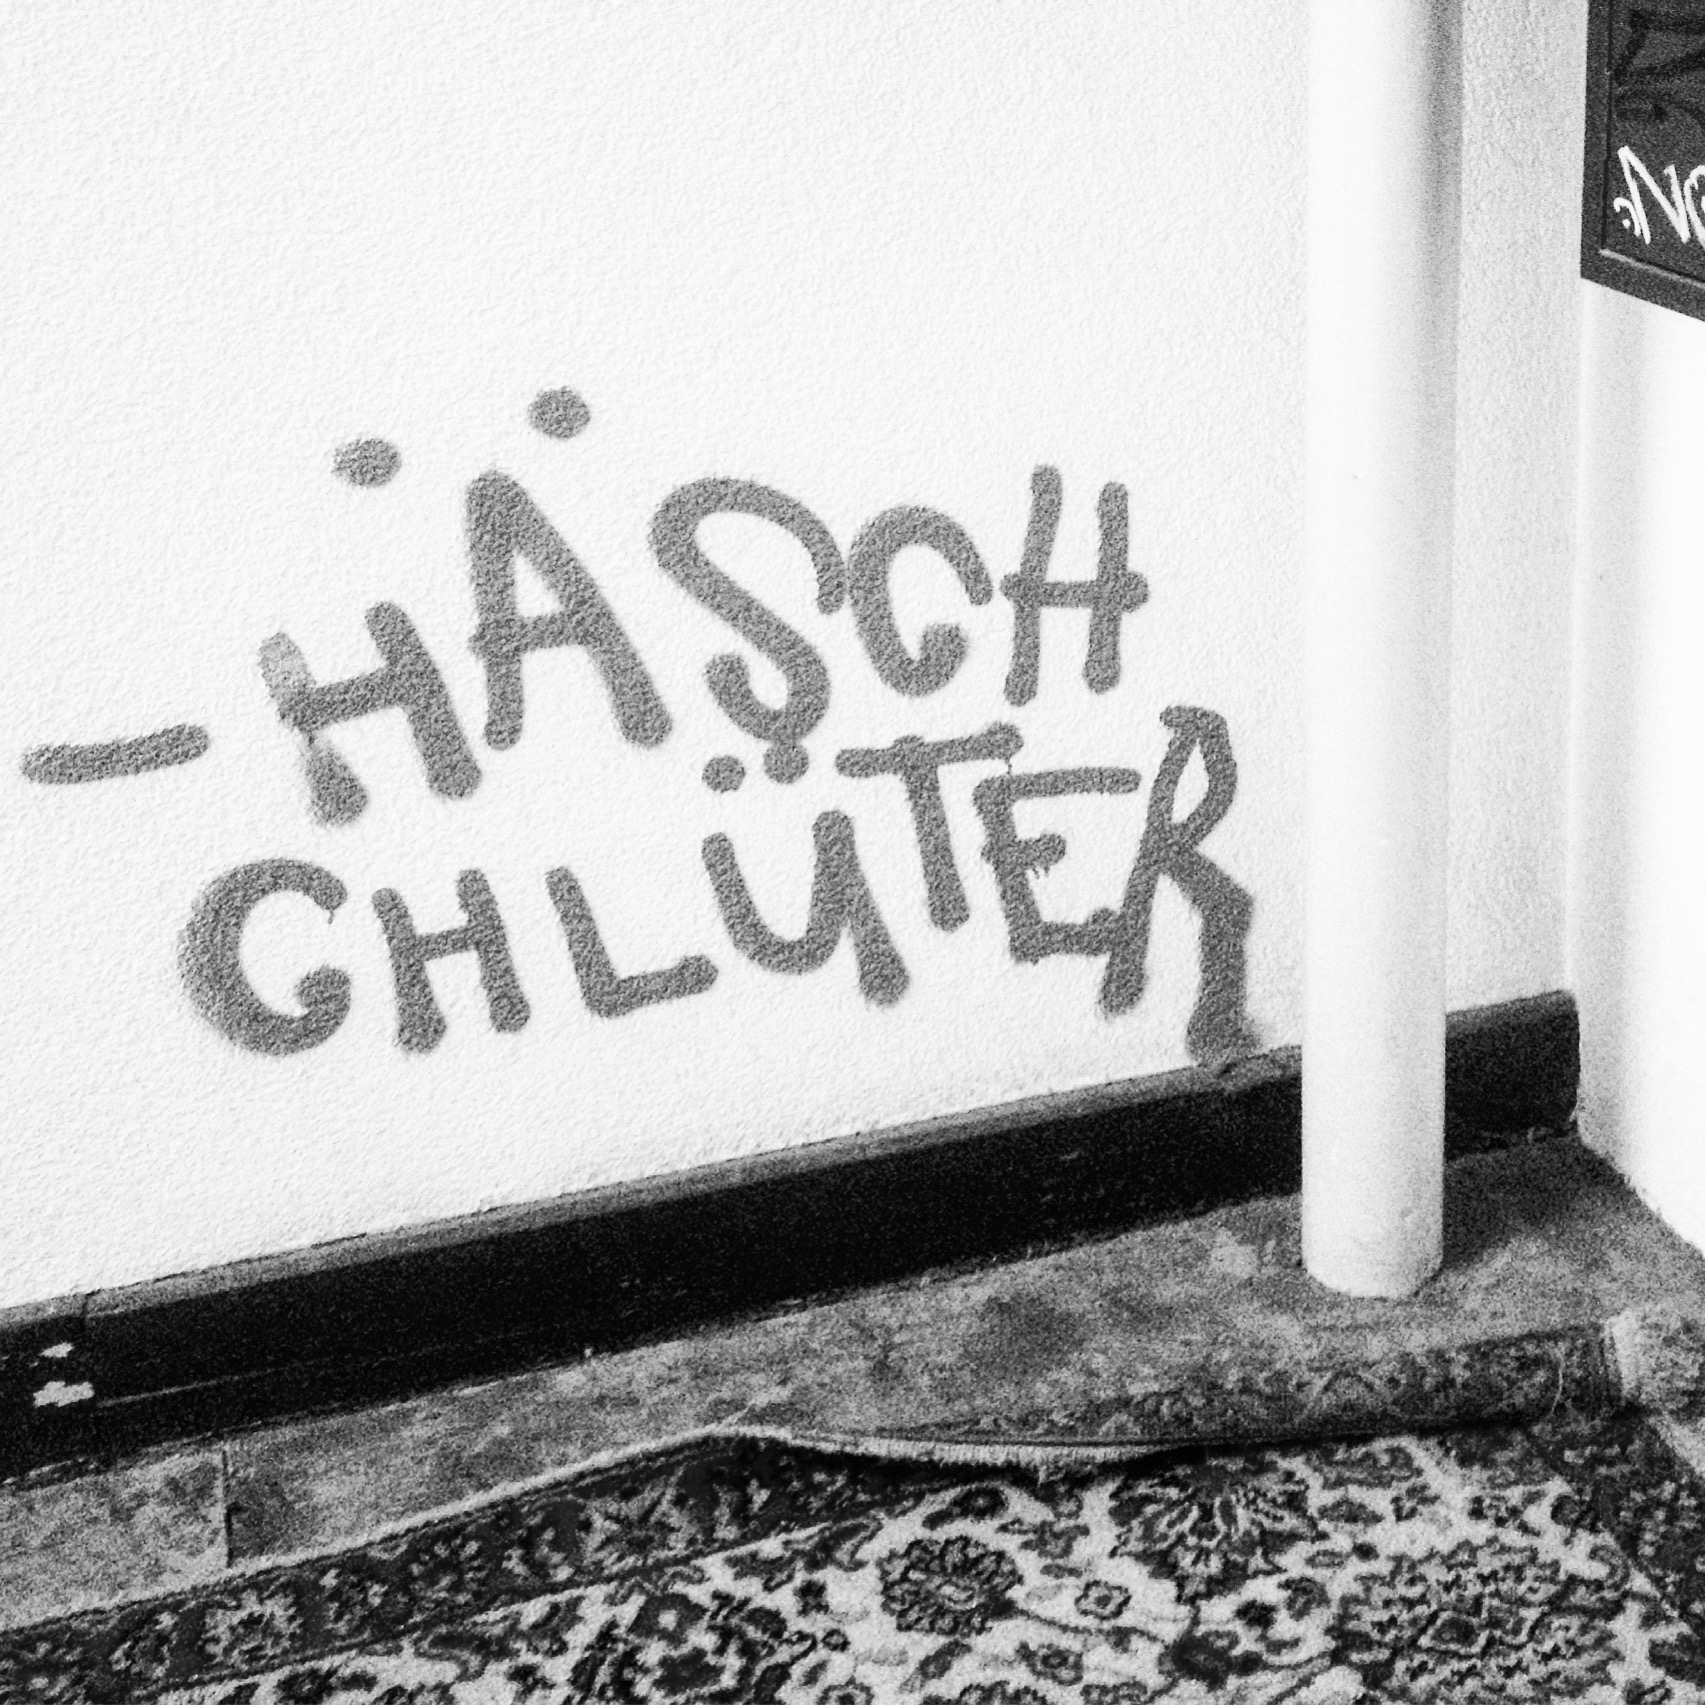 - HÄSCH
CHLÜTER